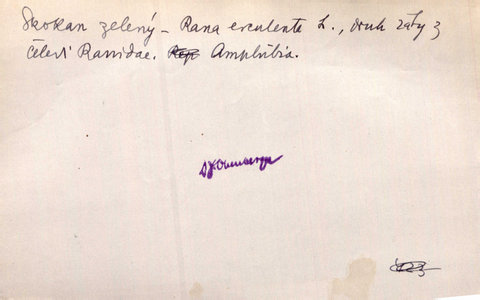 Skokan zelený – Rana esculenta L., druh žáby z
čeledi Ranidae. Amphibia.